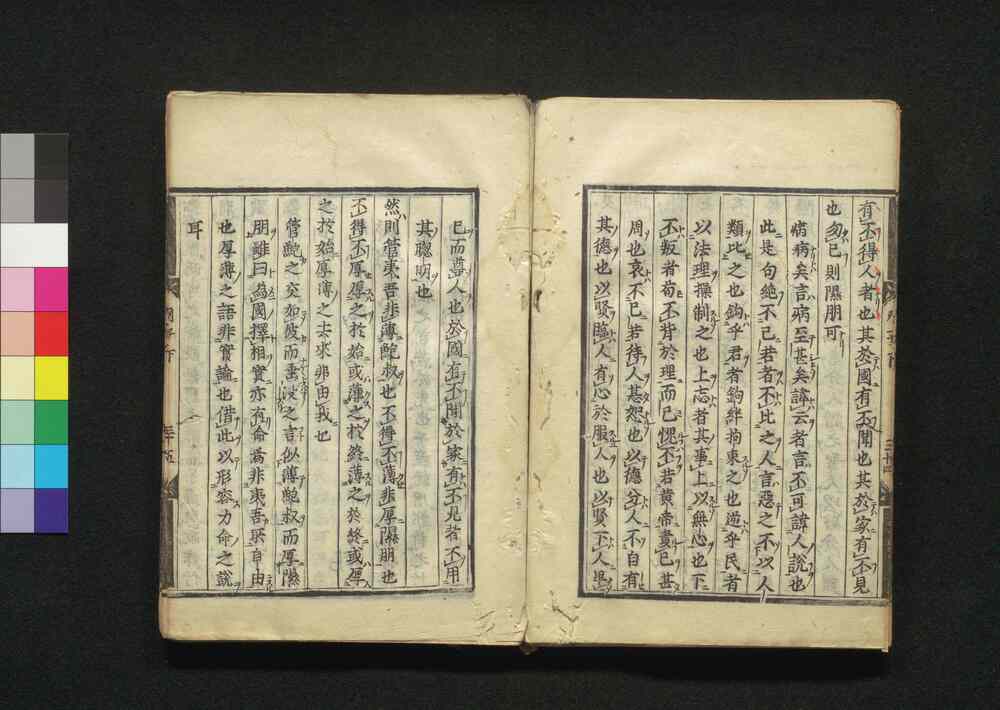 有不得人者也其於國有不聞也其於家有不見
也勿已則隰朋可
病病矣言病至甚矣諱云者言不可諱人說也
此是句絶不已若者不比之人言惡之不以人
類比之也鈎乎君者鈎絆拘束之也逆乎民者
以法理操制之也上忘者其事上以無心也下
不叛者苟不背於理而已愧不若黃帝責已甚
周也哀不已若待人甚恕也以德分人不自有
其德也以賢臨人有心於服人也以賢下人是
已而尊人也於國有不聞於家有不見若不用
其聰明也
然則管夷吾非薄鮑叔也不得不薄非厚隰朋也
不得不厚厚之於始或薄之於終薄之於終或厚
之於始厚薄之去來弗由我也
管鮑之交如彼而垂沒之言似薄鮑叔而厚隰
朋雖曰為國擇相實亦有命焉非夷吾所自由
也厚薄之語非實論也借此以形容力命之說
耳